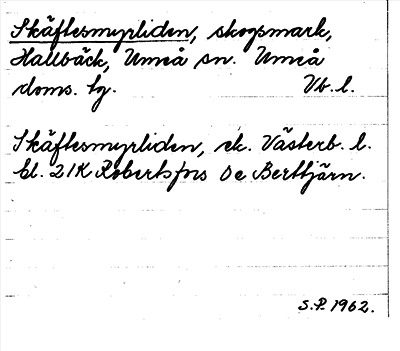 Skäftesmyrliden, skogsmark,
Hallbäck, Umeå sn. Umeå
doms. tg. Vb. l.
Skäftesmyrliden, ek. Västerb. l.
bl. 21K Robertsfors 0e Berttjärn.
S.P. 1962.